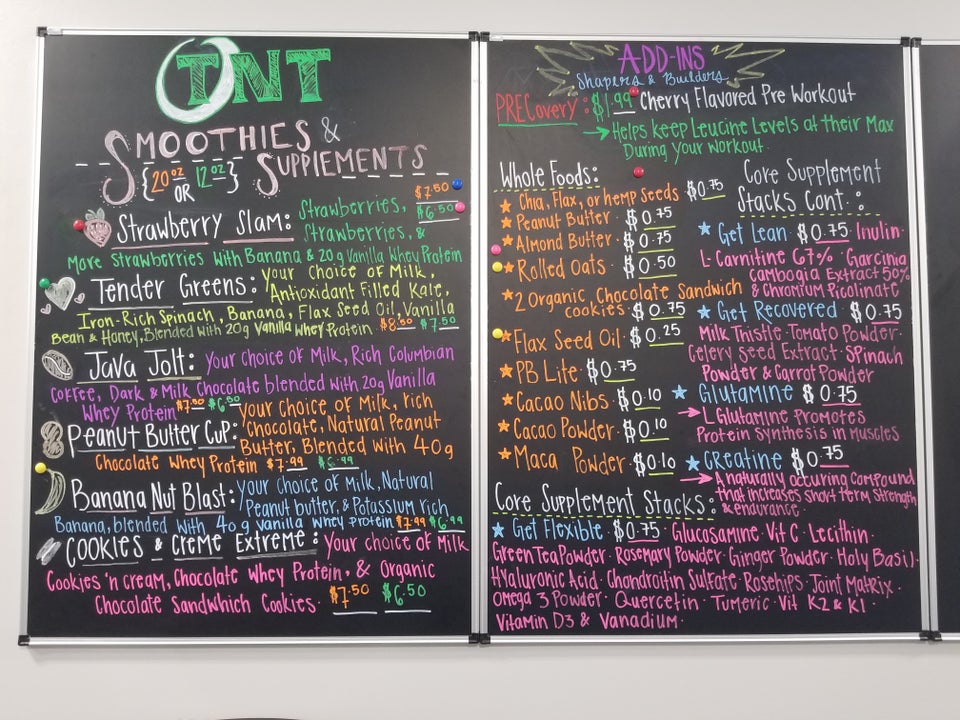 TNT
SMOOTHIES &
SUPPLEMENTS
{20oz OR 12oz}
$7.50
Strawberry Slam: Strawberries, $6.50
Strawberries, &
More Strawberries with Banana & 20g Vanilla Whey Protein
Tender Greens: Your choice of Milk,
Antioxidant Filled Kale,
Iron-Rich Spinach, Banana, Flax Seed Oil, Vanilla
Bean & Honey, Blended with 20g Vanilla Whey Protein $8.50 $7.50
Java Jolt: Your choice of Milk, Rich Columbian
Coffee, Dark & Milk Chocolate blended with 20g Vanilla
Whey Protein $7.50 $6.50
Peanut Butter Cup: Your choice of Milk, rich
Chocolate, Natural Peanut
Butter, Blended with 40g
Chocolate Whey Protein $7.99 $6.99
Banana Nut Blast: Your choice of Milk, Natural
Peanut butter, & Potassium rich
Banana, blended with 40g Vanilla Whey Protein $7.99 $6.99
Cookies & Creme Extreme: Your choice of Milk
Cookies 'n cream, Chocolate Whey Protein, & Organic
Chocolate Sandwhich Cookies. $7.50 $6.50
ADD-INS
Shapers & Builders
PRECovery: $1.99 Cherry Flavored Pre Workout
→ Helps keep Leucine Levels at their Max
During Your Workout.
Whole Foods:
★ Chia, Flax, or hemp Seeds $0.75
★ Peanut Butter · $0.75
★ Almond Butter · $0.75
★ Rolled Oats · $0.50
★ 2 Organic, Chocolate Sandwich
cookies · $0.75
★ Flax Seed Oil · $0.25
★ PB Lite · $0.75
★ Cacao Nibs · $0.10
★ Cacao Powder · $0.10
★ Maca Powder · $0.10
Core Supplement
Stacks Cont.:
★ Get Lean $0.75 · Inulin ·
L-Carnitine 67% · Garcinia
Cambogia Extract 50%
& Chromium Picolinate
★ Get Recovered · $0.75
Milk Thistle · Tomato Powder ·
Celery Seed Extract · Spinach
Powder & Carrot Powder
★ Glutamine $0.75
→ L Glutamine Promotes
Protein Synthesis in Muscles
★ Creatine $0.75
→ A naturally occuring compound
that increases short term strength
& endurance.
Core Supplement Stacks:
★ Get Flexible · $0.75 · Glucosamine · Vit C · Lecithin ·
Green Tea Powder · Rosemary Powder · Ginger Powder · Holy Basil ·
Hyaluronic Acid · Chondroitin Sulfate · Rosehips · Joint Matrix ·
Omega 3 Powder · Quercetin · Tumeric · Vit K2 & K1 ·
Vitamin D3 & Vanadium ·